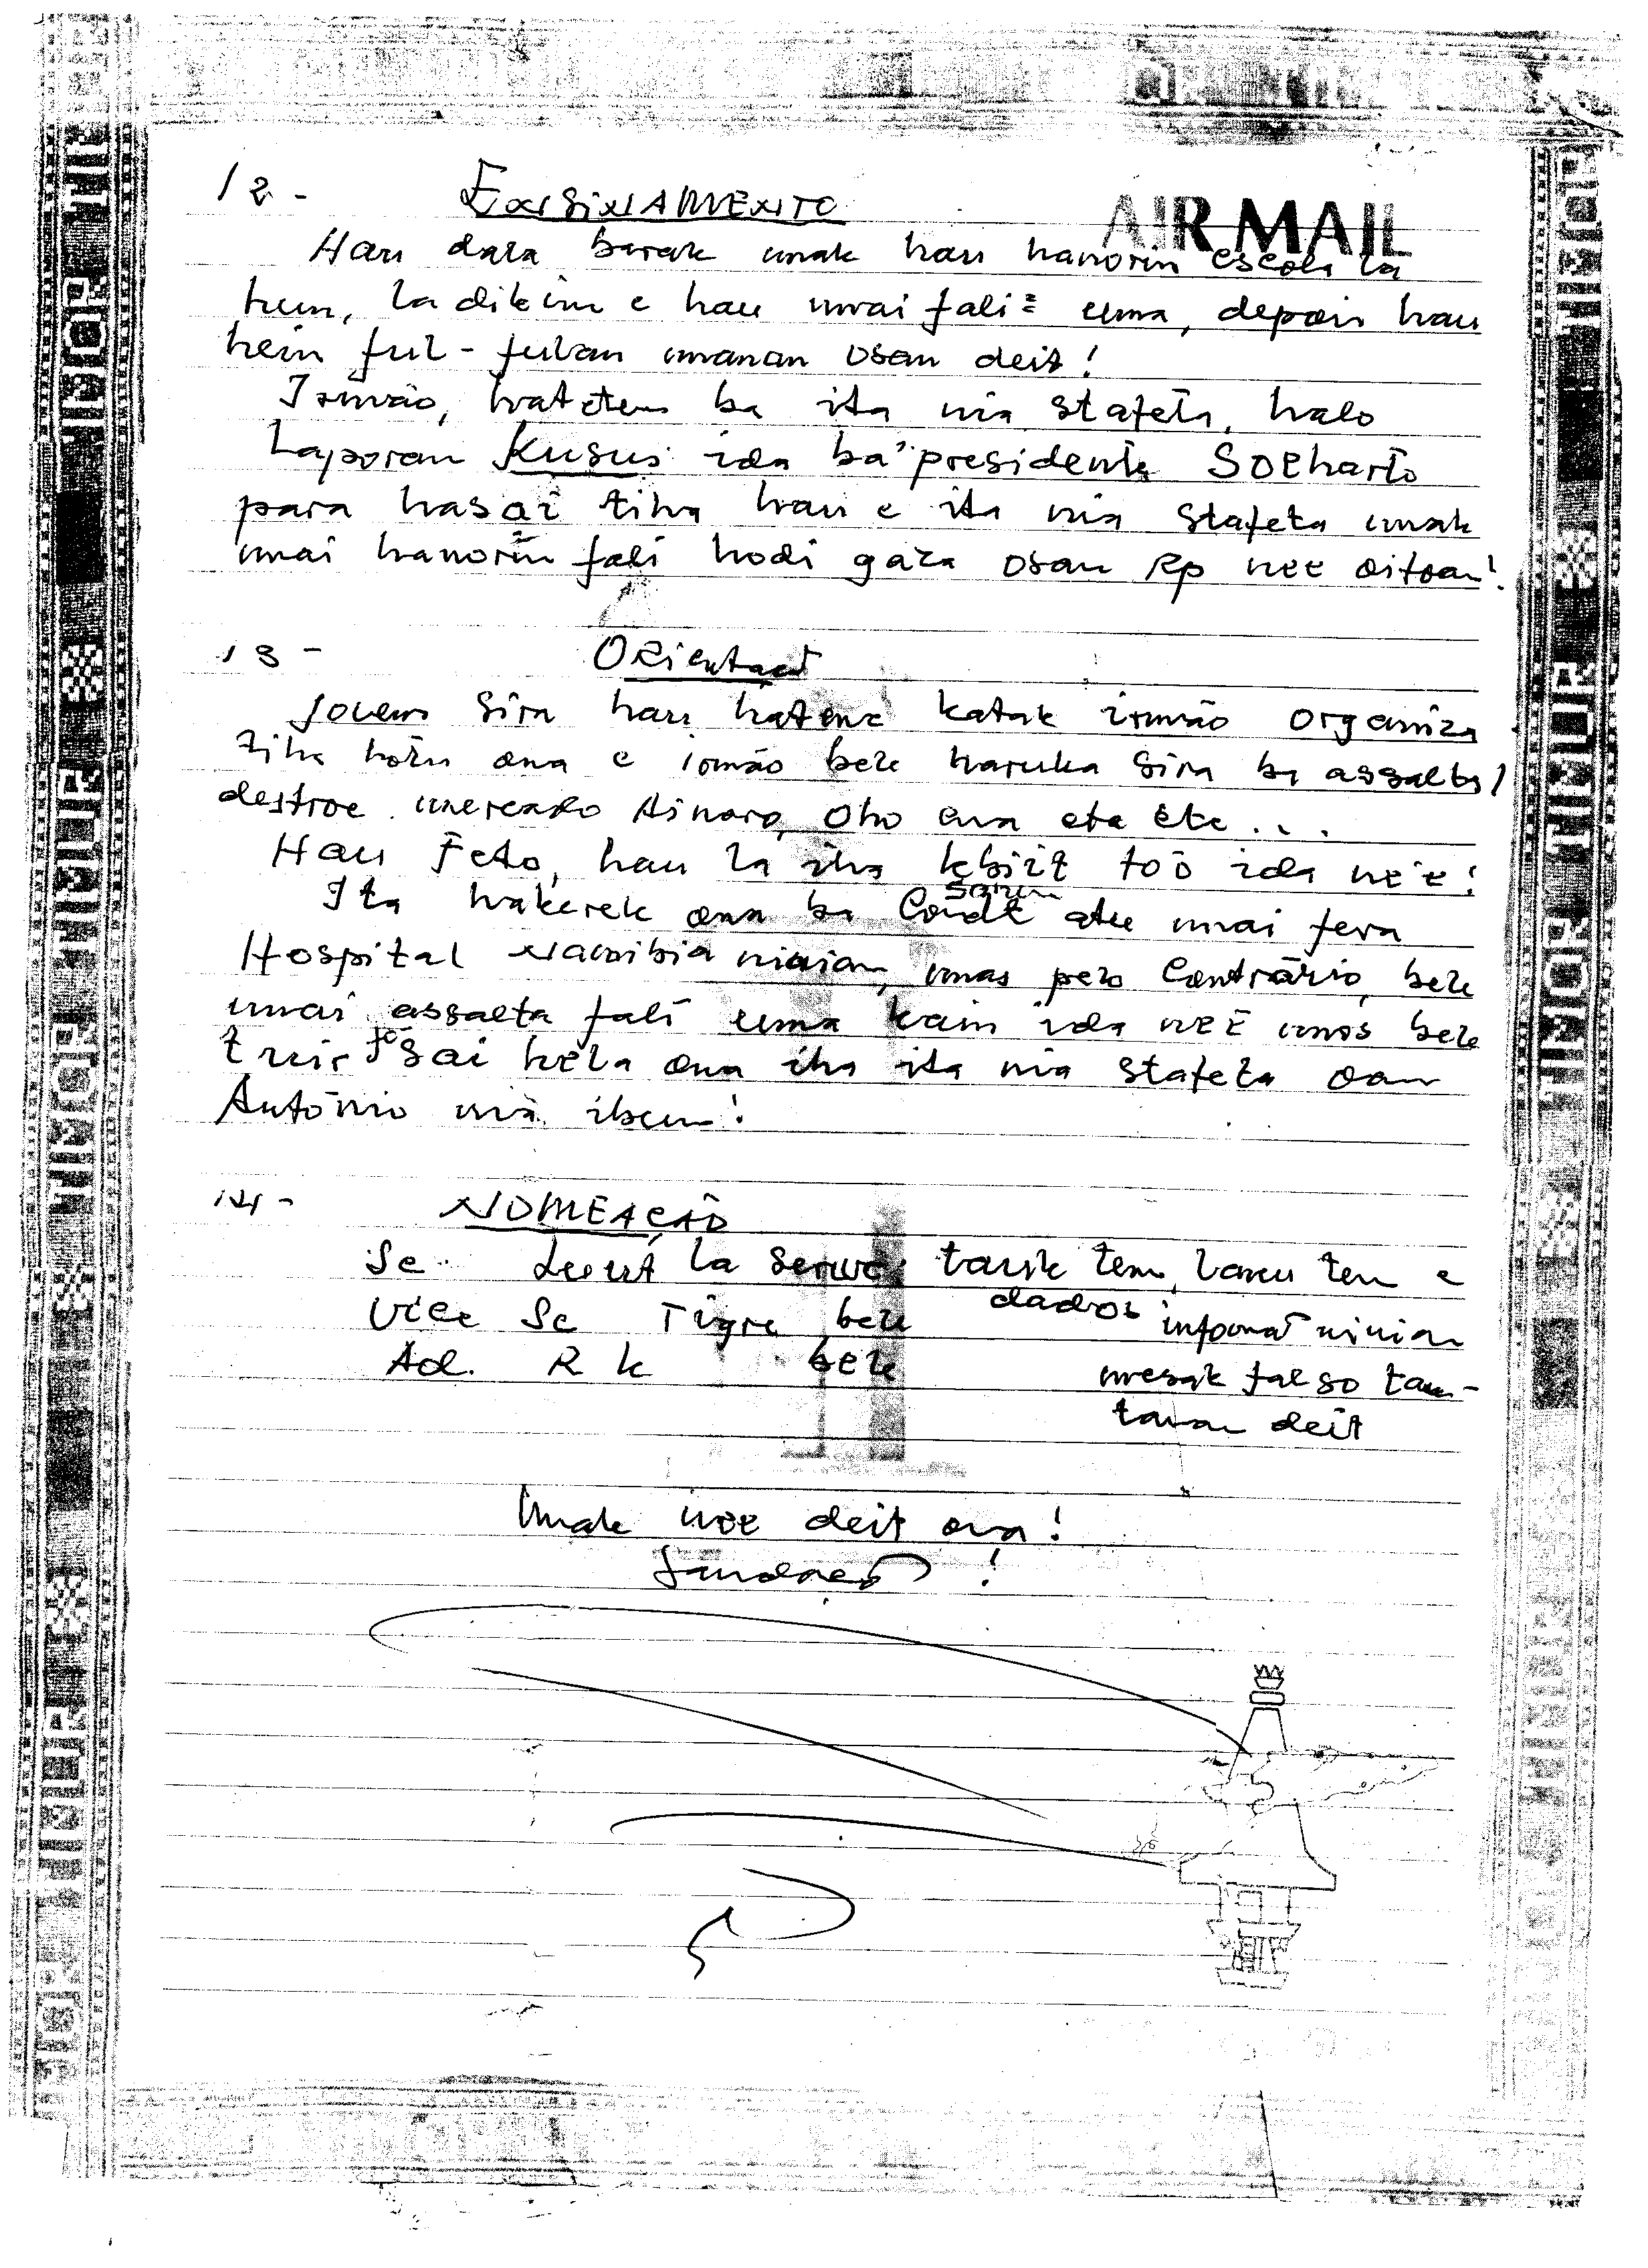 12 - ENSINAMENTO
AIR MAIL
Hau dala barak mak hau hanorin escola la
hun, la dikin e hau mai fali uma, depois hau
hein ful-fulan manan osan deit!
Irmão, hateten ba ita nia stafeta, halo
Laporan Kusus ida ba presidente Soeharto
para hasai tiha hau e ita nia stafeta mak
mai hanorin fali hodi gaza osan Rp nee oitoan!
13 - Orientaçõ
Jovem sira hau hatene katak irmão organiza
tiha hotu ona e irmão bele haruka sira ba assalta/
destroe mercado Ainaro, oho ema etc etc...
Hau Feto, hau la iha kbiit too ida ne'e!
Ita hakerek ona ba Condt atu mai fera
Hospital Namibia ninian, mas pelo Contrário, bele
mai assalta fali uma kain ida nee mos bele
tuir sai hela ona iha ita nia stafeta oan
António nia ibun!
14 - NOMEAÇÃO
Se La serve tansk tem, lanu ten e
Vice Se Tigre bele dados informaõ ninian
Ad. R k bele mesak falso tan-
tanan deit
Mak nee deit ona!
Saudaçõ!
TIMOR TIMUR TIMOR TIMUR TIMOR TIMUR
TIMOR TIMUR TIMOR TIMUR